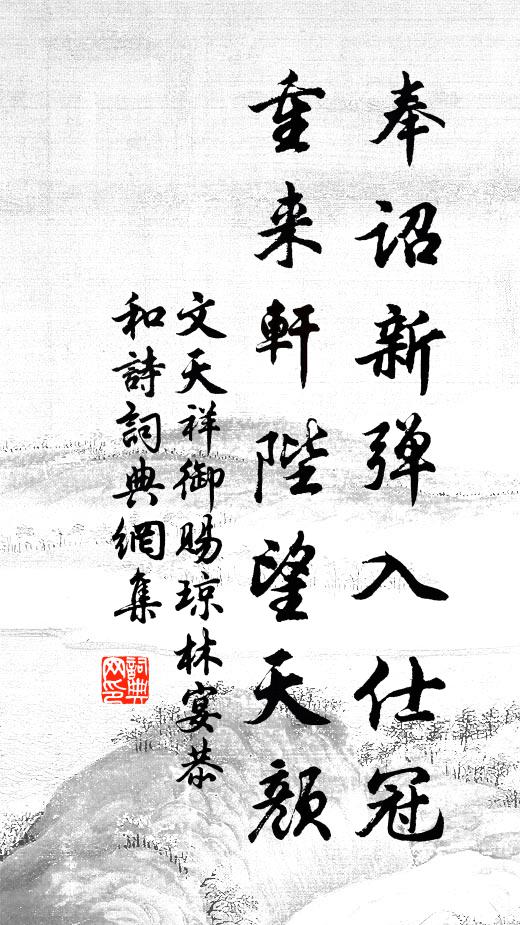 奉诏新弹入仕冠
重来軒陛望天顏
文天祥御賜琼林宴恭
和詩詞典網集
詞典
网印